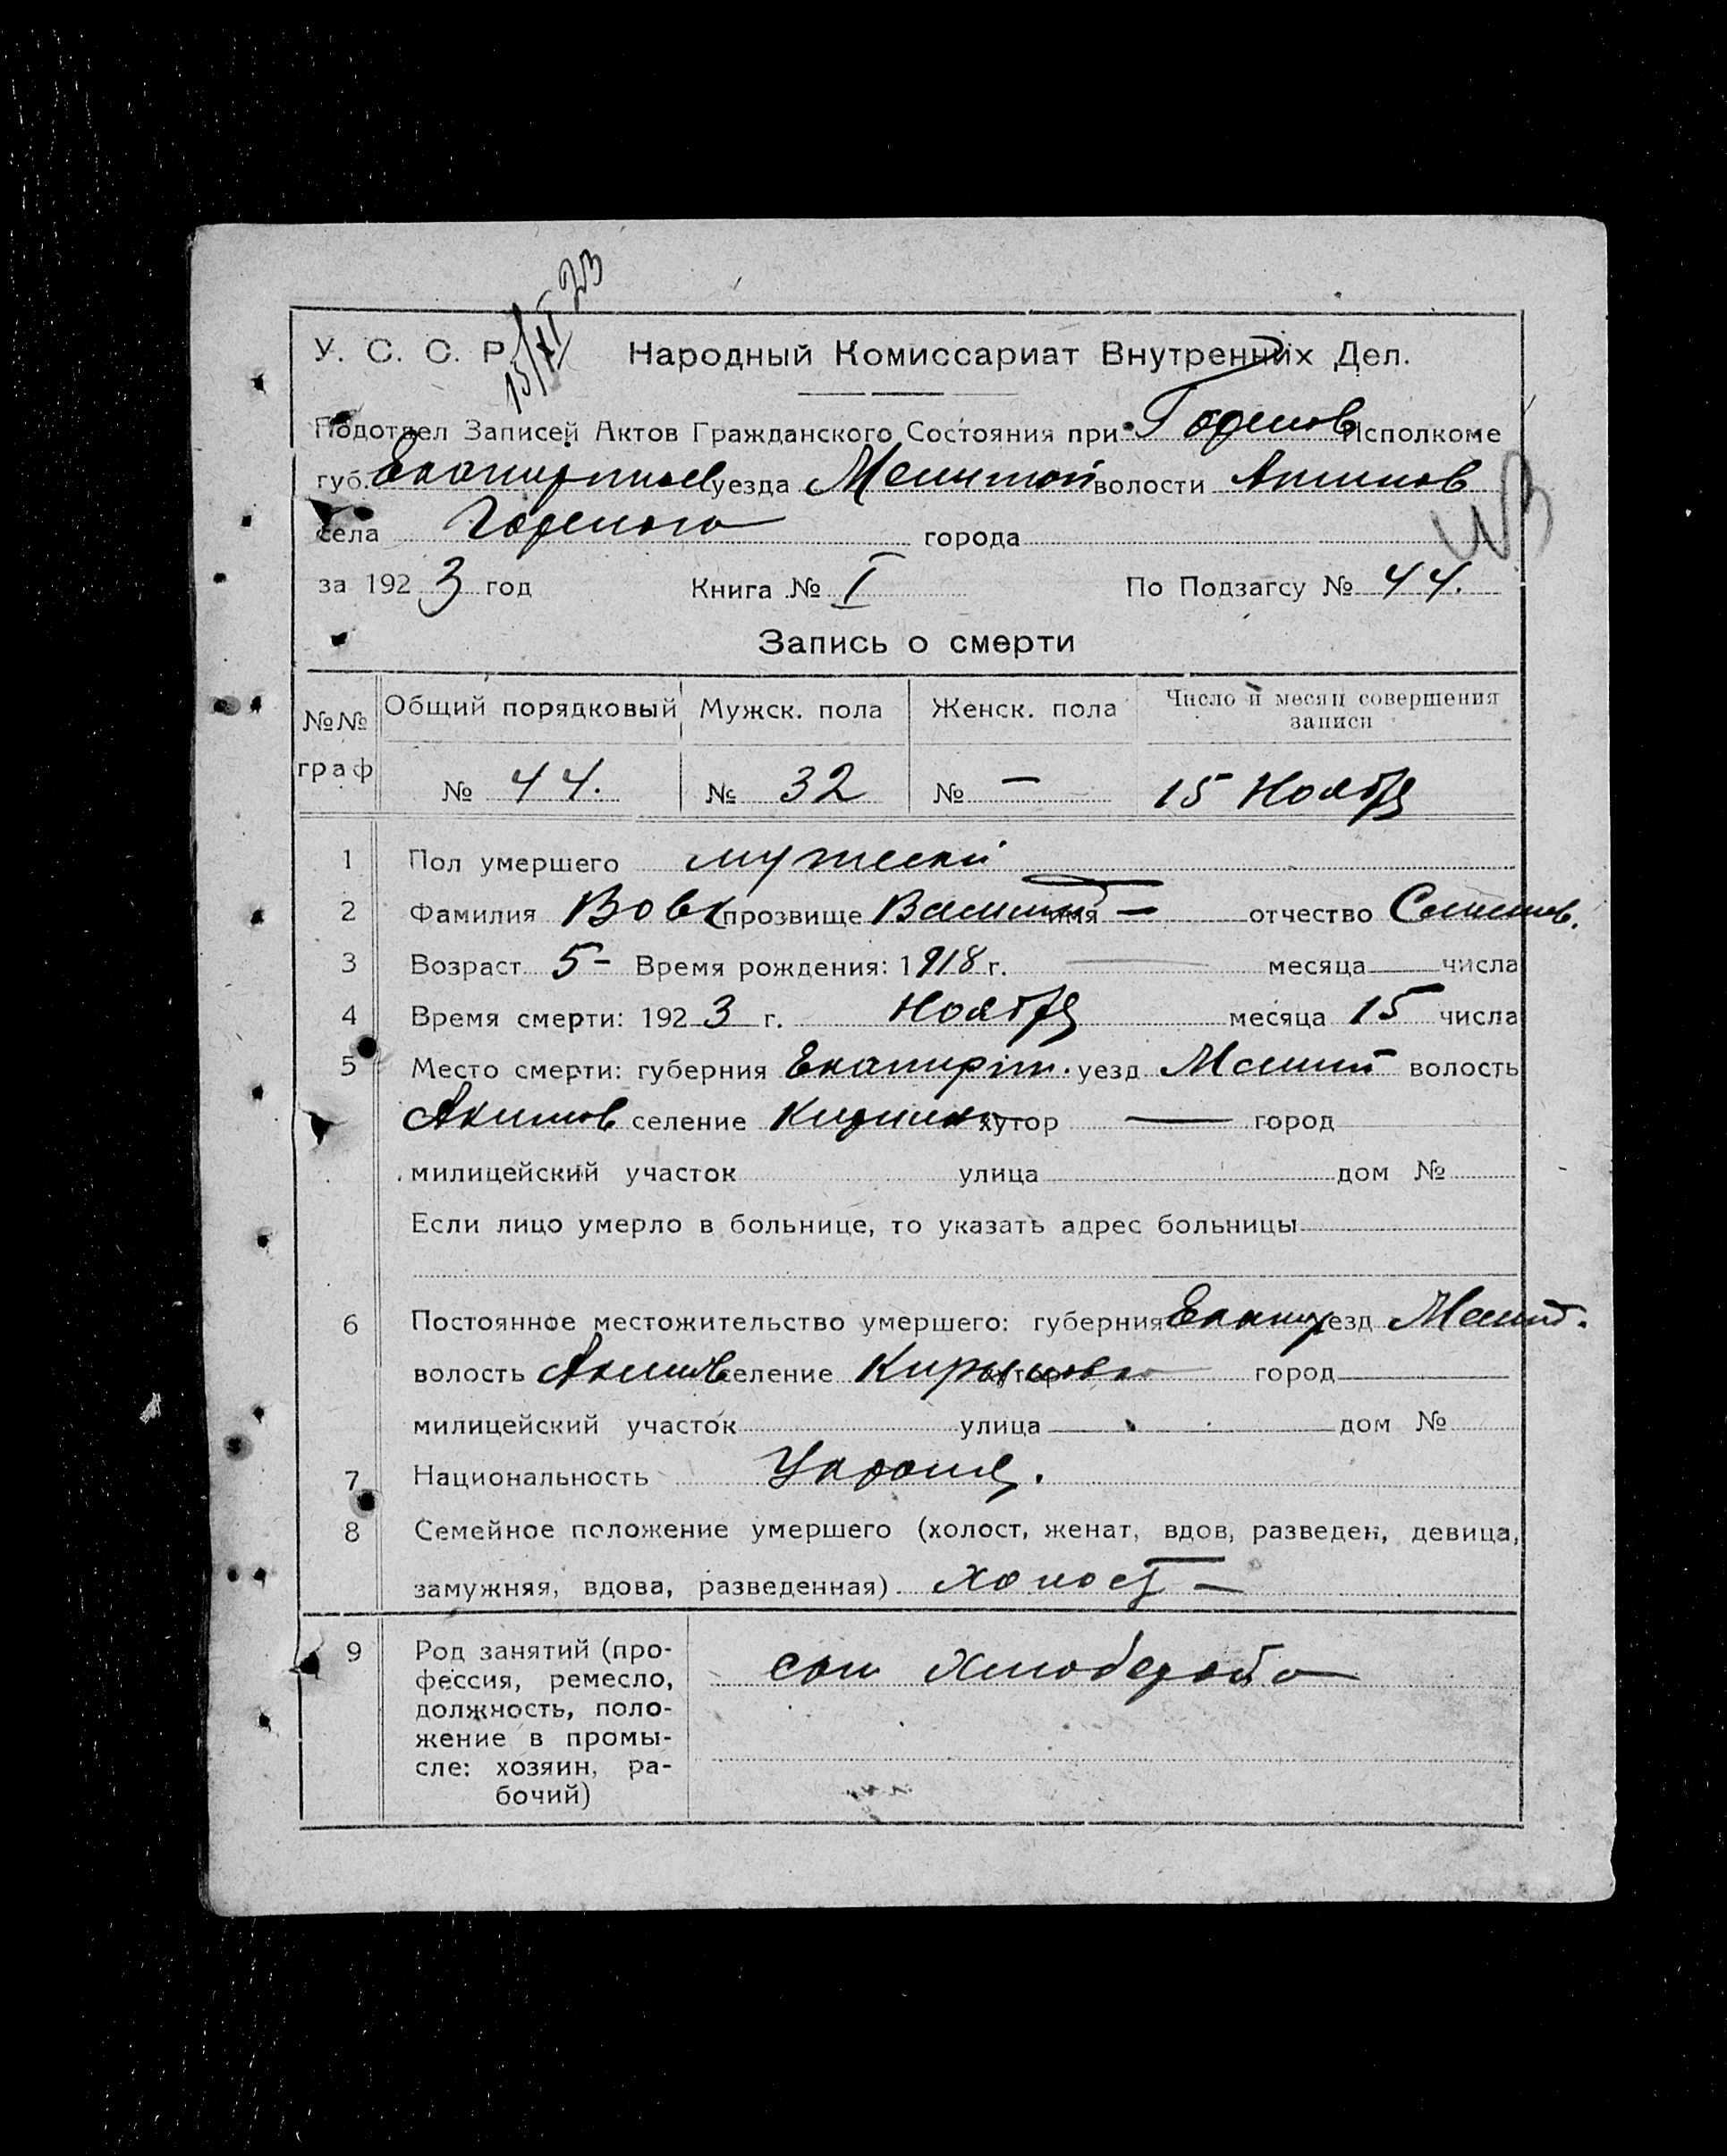 15/XI 23
У. С. С. Р. Народный Комиссариат Внутренних Дел.
Подотдел Записей Актов Гражданского Состояния при Исполкоме
губ. уезда Мелитой волости Акимов
села города
за 1923 год Книга № I По Подзагсу № 44.
Запись о смерти
№№ граф Общий порядковый Мужск. пола Женск. пола Число и месяц совершения записи
№ 44. № 32 № — 15 Ноября
1 Пол умершего мужской
2 Фамилия Вовк прозвище имя — отчество
3 Возраст 5 – Время рождения: 1918 г. — месяца — числа
4 Время смерти: 1923 г. Ноября месяца 15 числа
5 Место смерти: губерния уезд Мелит волость
Акимов селение хутор — город
милицейский участок улица дом №
Если лицо умерло в больнице, то указать адрес больницы
6 Постоянное местожительство умершего: губерния Екатер уезд Мелит.
волость Акимов селение хутор город
милицейский участок улица дом №
7 Национальность
8 Семейное положение умершего (холост, женат, вдов, разведен, девица,
замужняя, вдова, разведенная) холост –
9 Род занятий (про-
фессия, ремесло,
должность, поло-
жение в промы-
сле: хозяин, ра-
бочий)
сын хлебороба